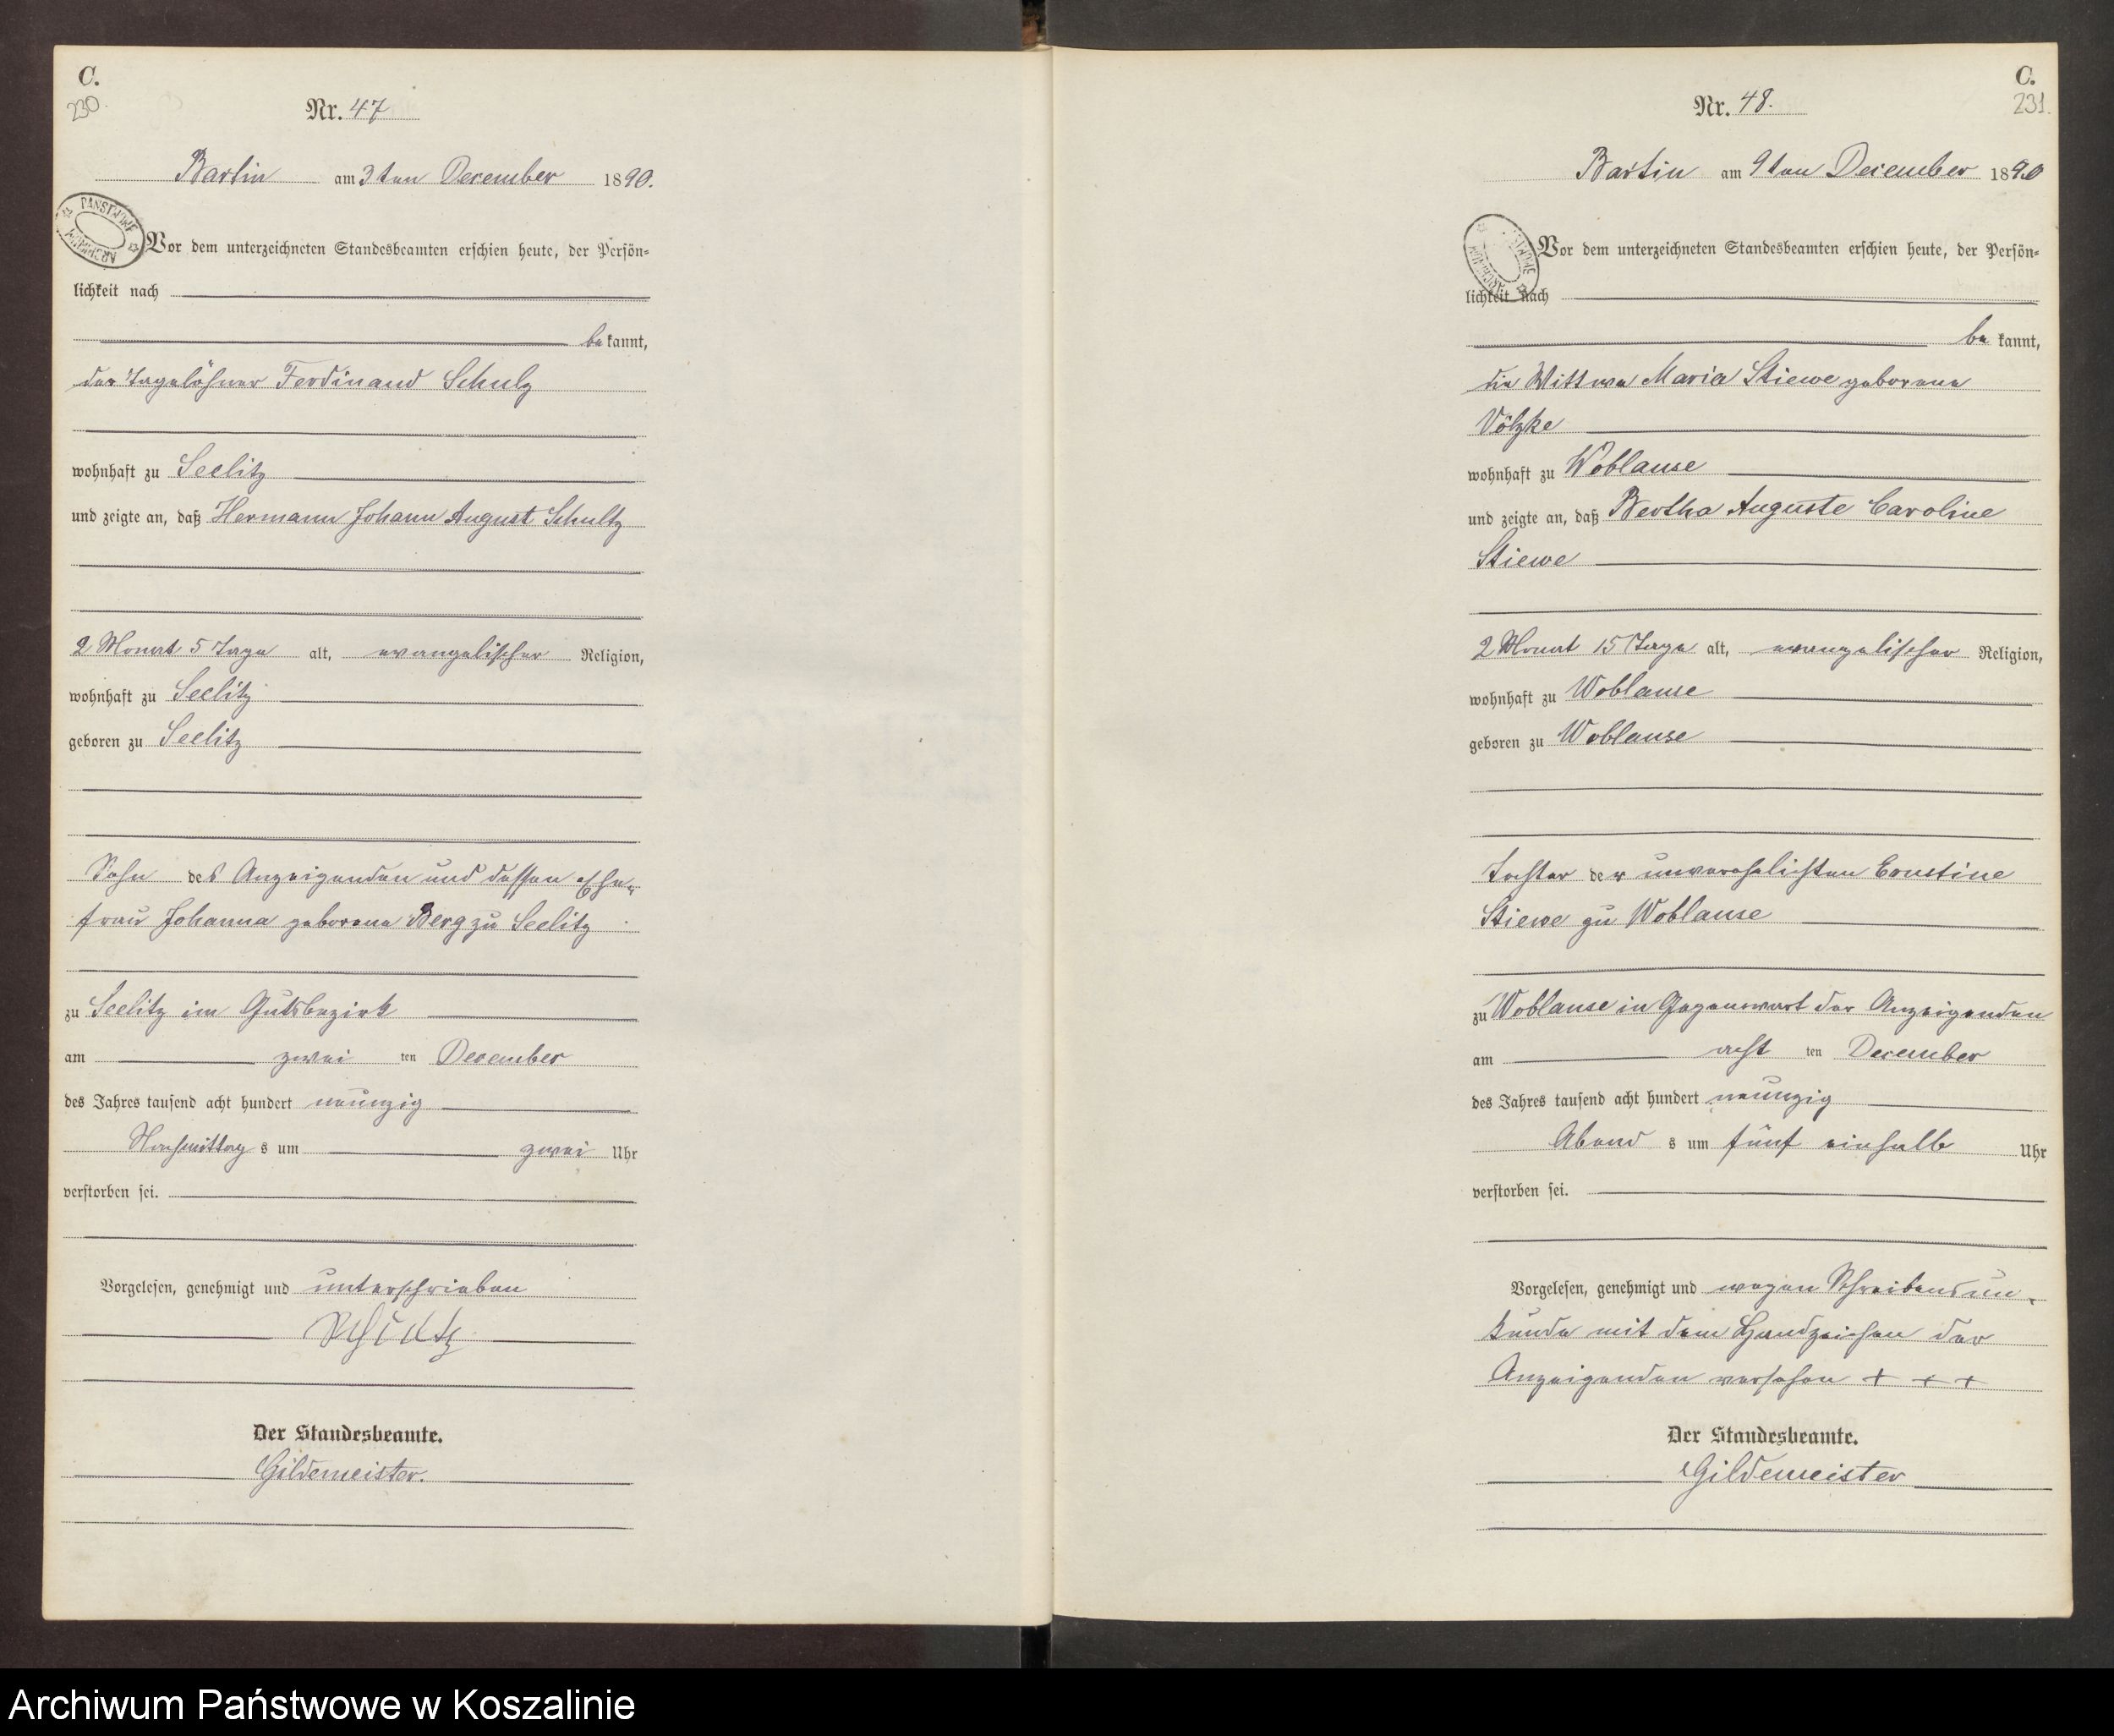 C.
230.
Nr. 47
Bartin am 3ten December 1890.
PANSTWOWE ARCHIWUM
Vor dem unterzeichneten Standesbeamten erschien heute, der Persön=
lichkeit nach
be kannt,
der Tagelöhner Ferdinand Schulz
wohnhaft zu Seelitz
und zeigte an, daß Hermann Johann August Schultz
2 Monat 5 Tage alt, evangelischer Religion,
wohnhaft zu Seelitz
geboren zu Seelitz
Sohn des Anzeigenden und dessen Ehe=
frau Johanna geborene Berg zu Seelitz
zu Seelitz im Gutsbezirk
am zwei ten December
des Jahres tausend acht hundert neunzig
Nachmittag s um zwei Uhr
verstorben sei.
Vorgelesen, genehmigt und unterschrieben
Der Standesbeamte.
Gildemeister.
C.
231.
Nr. 48.
Bartin am 9ten December 1890
Vor dem unterzeichneten Standesbeamten erschien heute, der Persön=
lichkeit nach
be kannt,
die Wittwe Maria Stiewe geborene
Völzke
wohnhaft zu Woblanse
und zeigte an, daß Bertha Auguste Caroline
Stiewe
2 Monat 15 Tage alt, evangelischer Religion,
wohnhaft zu Woblanse
geboren zu Woblanse
Tochter der unverehelichten Ernstine
Stiewe zu Woblanse
zu Woblanse in Gegenwart der Anzeigenden
am acht ten December
des Jahres tausend acht hundert neunzig
Abend s um fünf einhalb Uhr
verstorben sei.
Vorgelesen, genehmigt und wegen Schreibensun=
kunde mit dem Handzeichen der
Anzeigenden versehen + + +
Der Standesbeamte.
Gildemeister
Archiwum Państwowe w Koszalinie